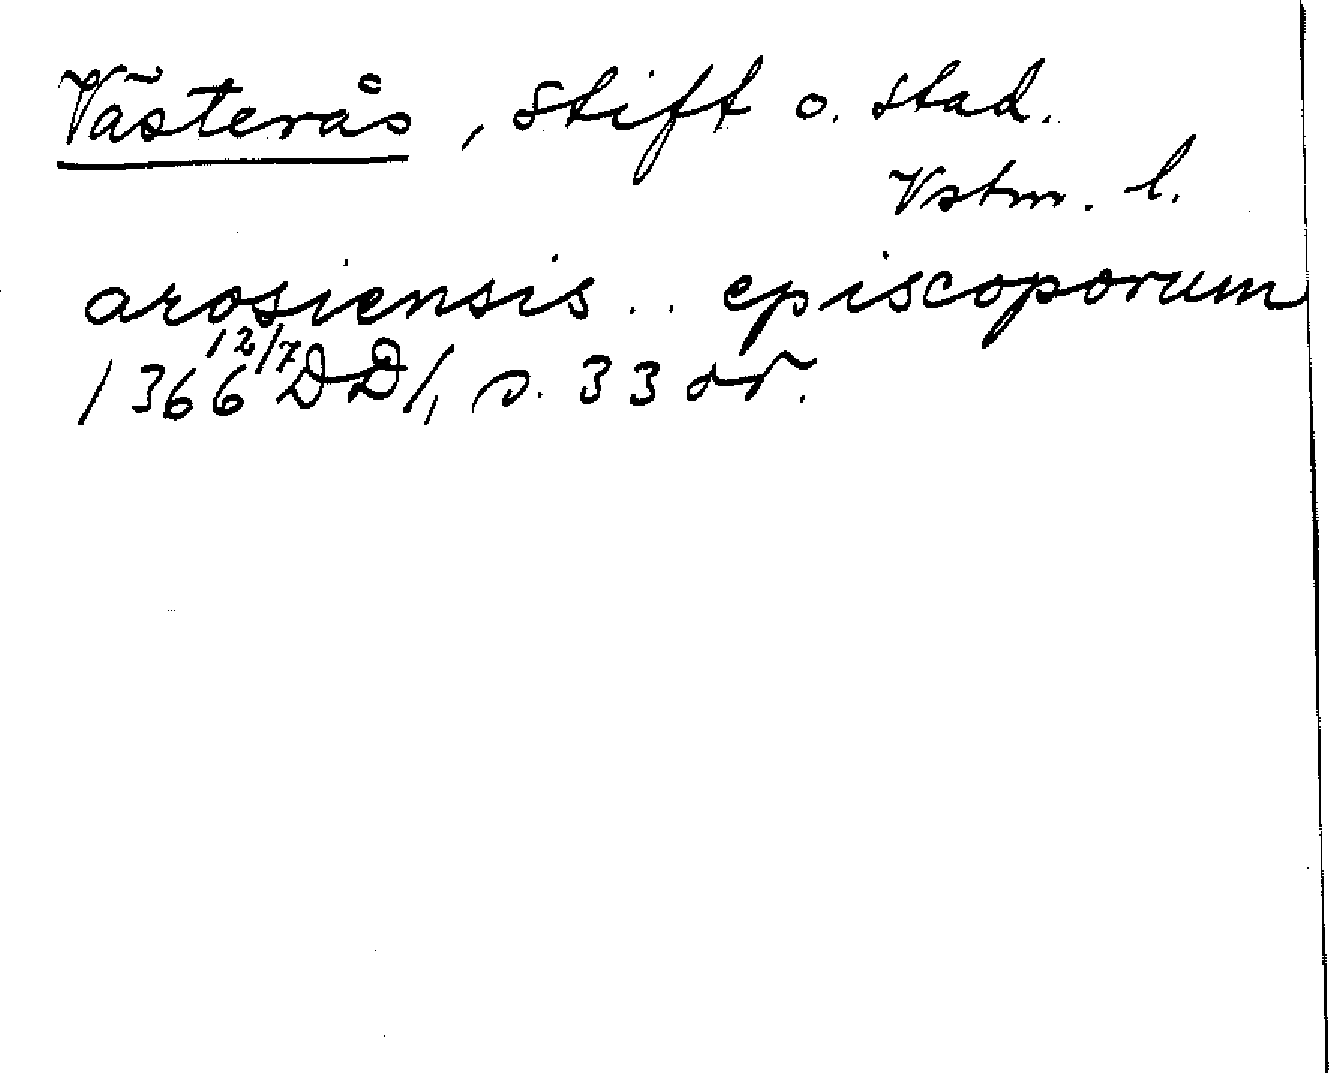 Västerås, stift o. stad.
Vstm. l.
arosiensis .. episcoporum
1366 12/7 DD 1, s. 33 or.